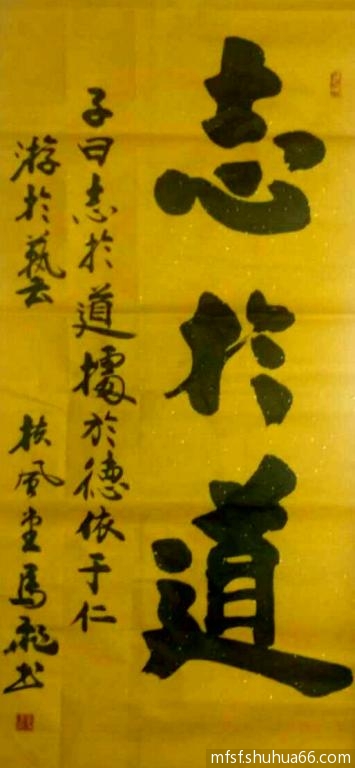 志於道
子曰志於道據於德依于仁
游於藝 扶風堂馬飛书
mfsfshuhua66.com